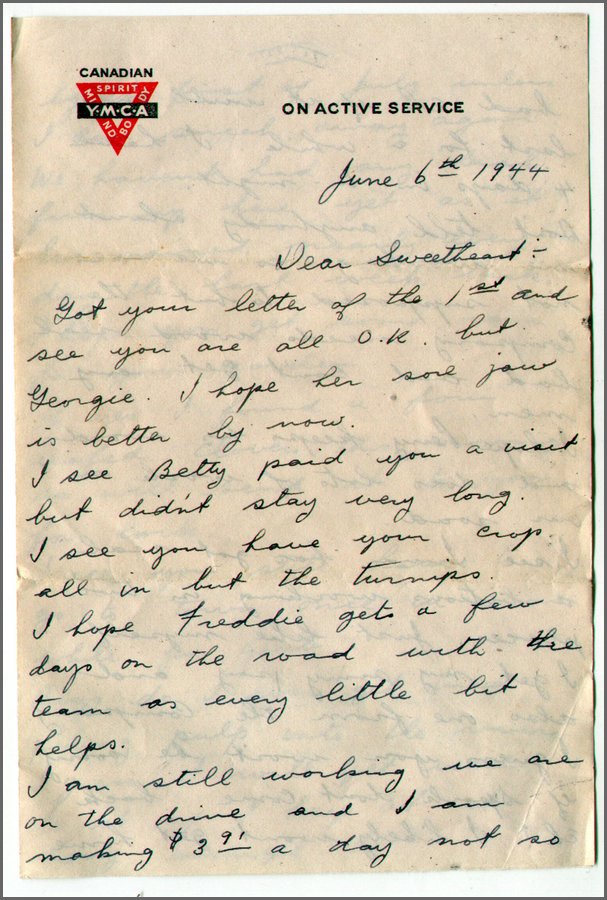 CANADIAN
SPIRIT
MIND
Y·M·C·A
BODY
ON ACTIVE SERVICE
June 6th 1944
Dear Sweetheart:-
Got your letter of the 1st and
see you are all O.K. but
Georgie. I hope her sore jaw
is better by now.
I see Betty paid you a visit
but didn't stay very long.
I see you have your crop
all in but the turnips.
I hope Freddie gets a few
days on the road with the
team as every little bit
helps.
I am still working we are
on the drive and I am
making $3 91 a day not so